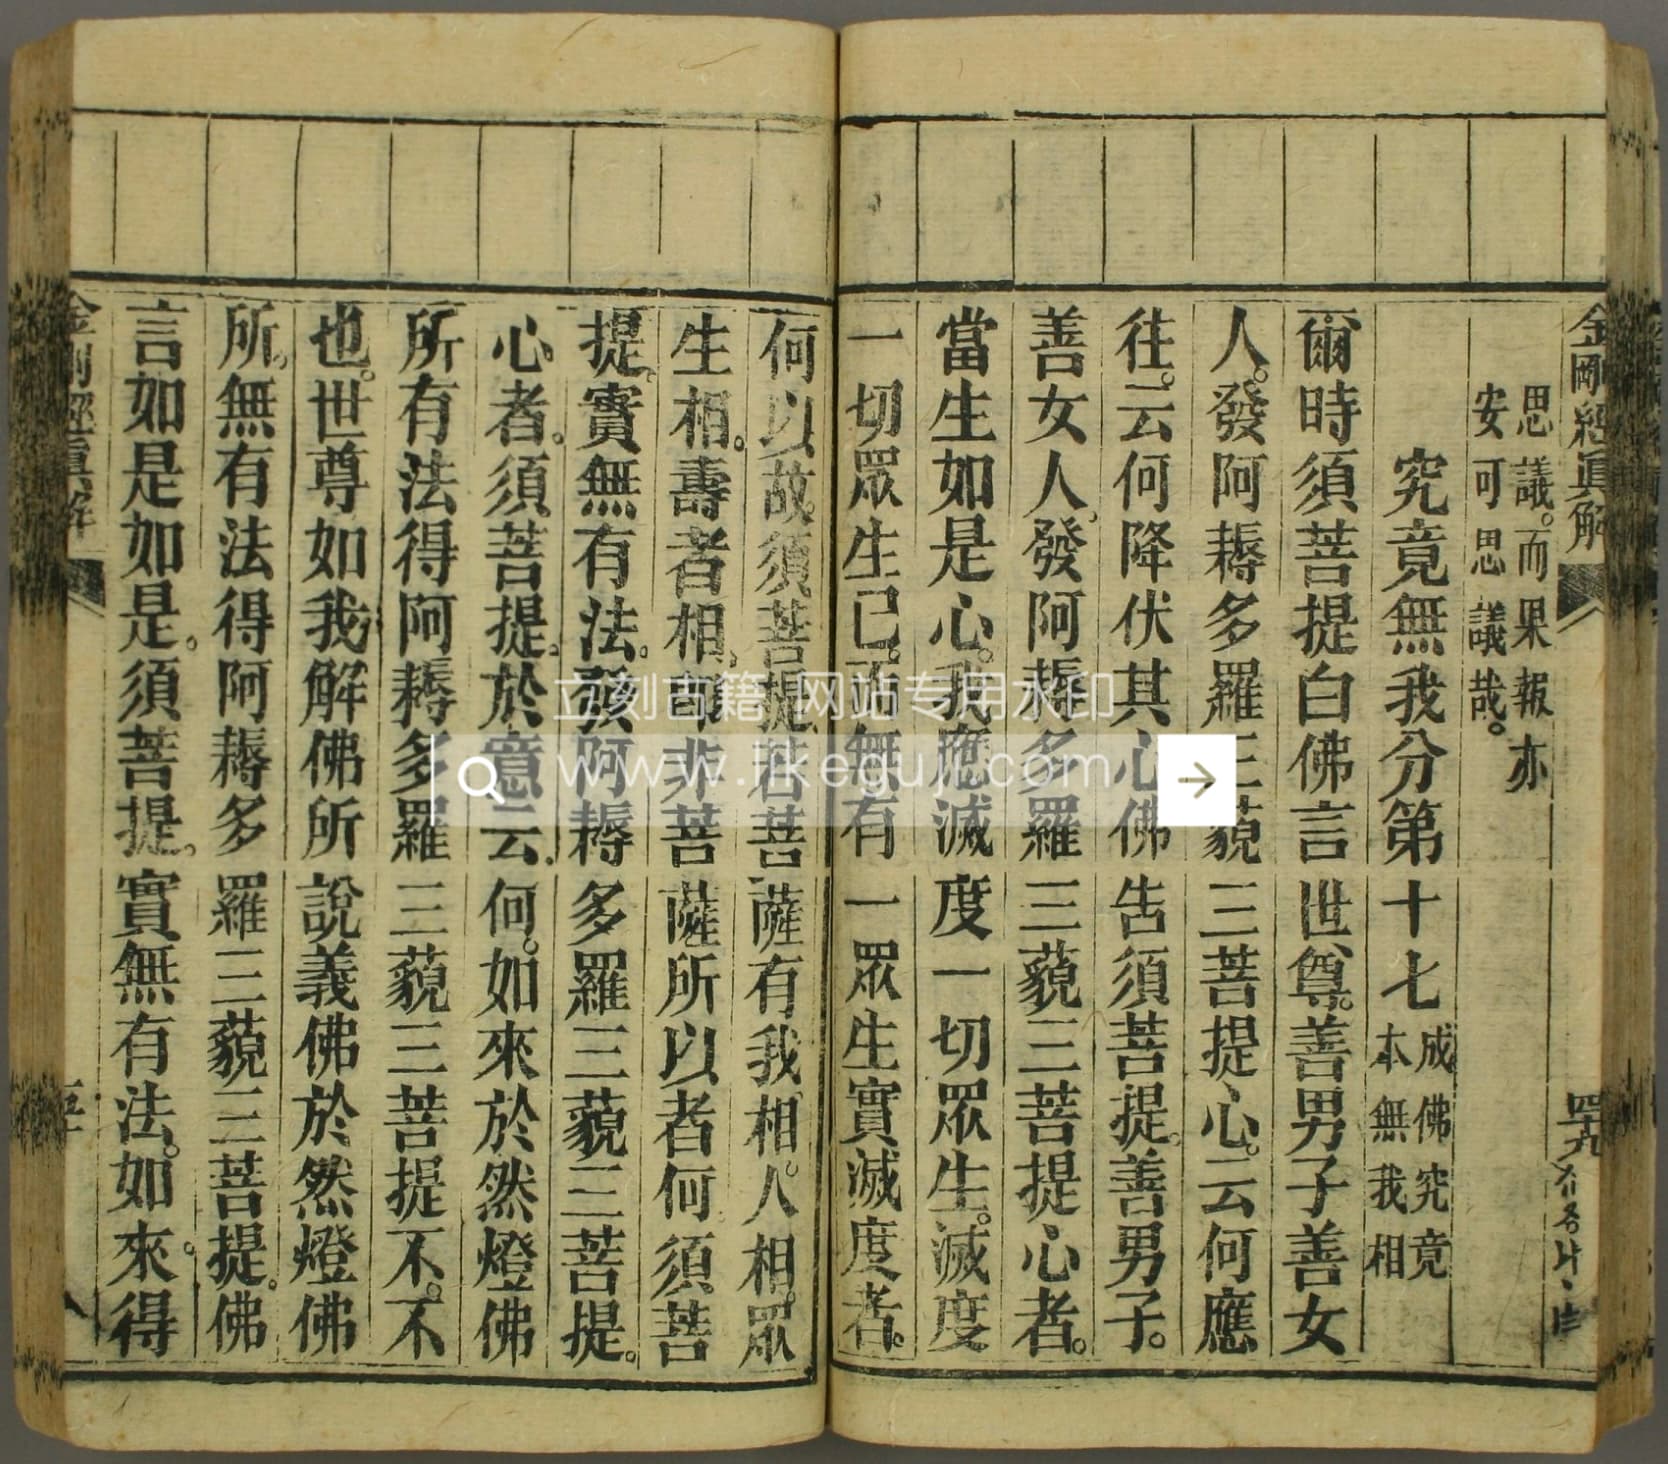 金剛經眞解
四九
思議。而果報亦
安可思議哉。
究竟無我分第十七
成佛究竟
本無我相
爾時須菩提白佛言世尊。善男子善女
人。發阿耨多羅三藐三菩提心。云何應
往。云何降伏其心佛告須菩提。善男子。
善女人發阿耨多羅三藐三菩提心者。
當生如是心。我應滅度一切眾生。滅度
一切眾生已。而無有一眾生實滅度者。
何以故。須菩提若菩薩有我相。人相。眾
生相。壽者相。卽非菩薩所以者何須菩
提。實無有法。發阿耨多羅三藐三菩提。
心者。須菩提。於意云何。如來於然燈佛
所有法得阿耨多羅三藐三菩提不。不
也。世尊如我解佛所說義佛於然燈佛
所。無有法得阿耨多羅三藐三菩提。佛
言如是如是。須菩提。實無有法。如來。得
金剛經眞解
立刻古籍 网站专用水印
www.likeguji.com